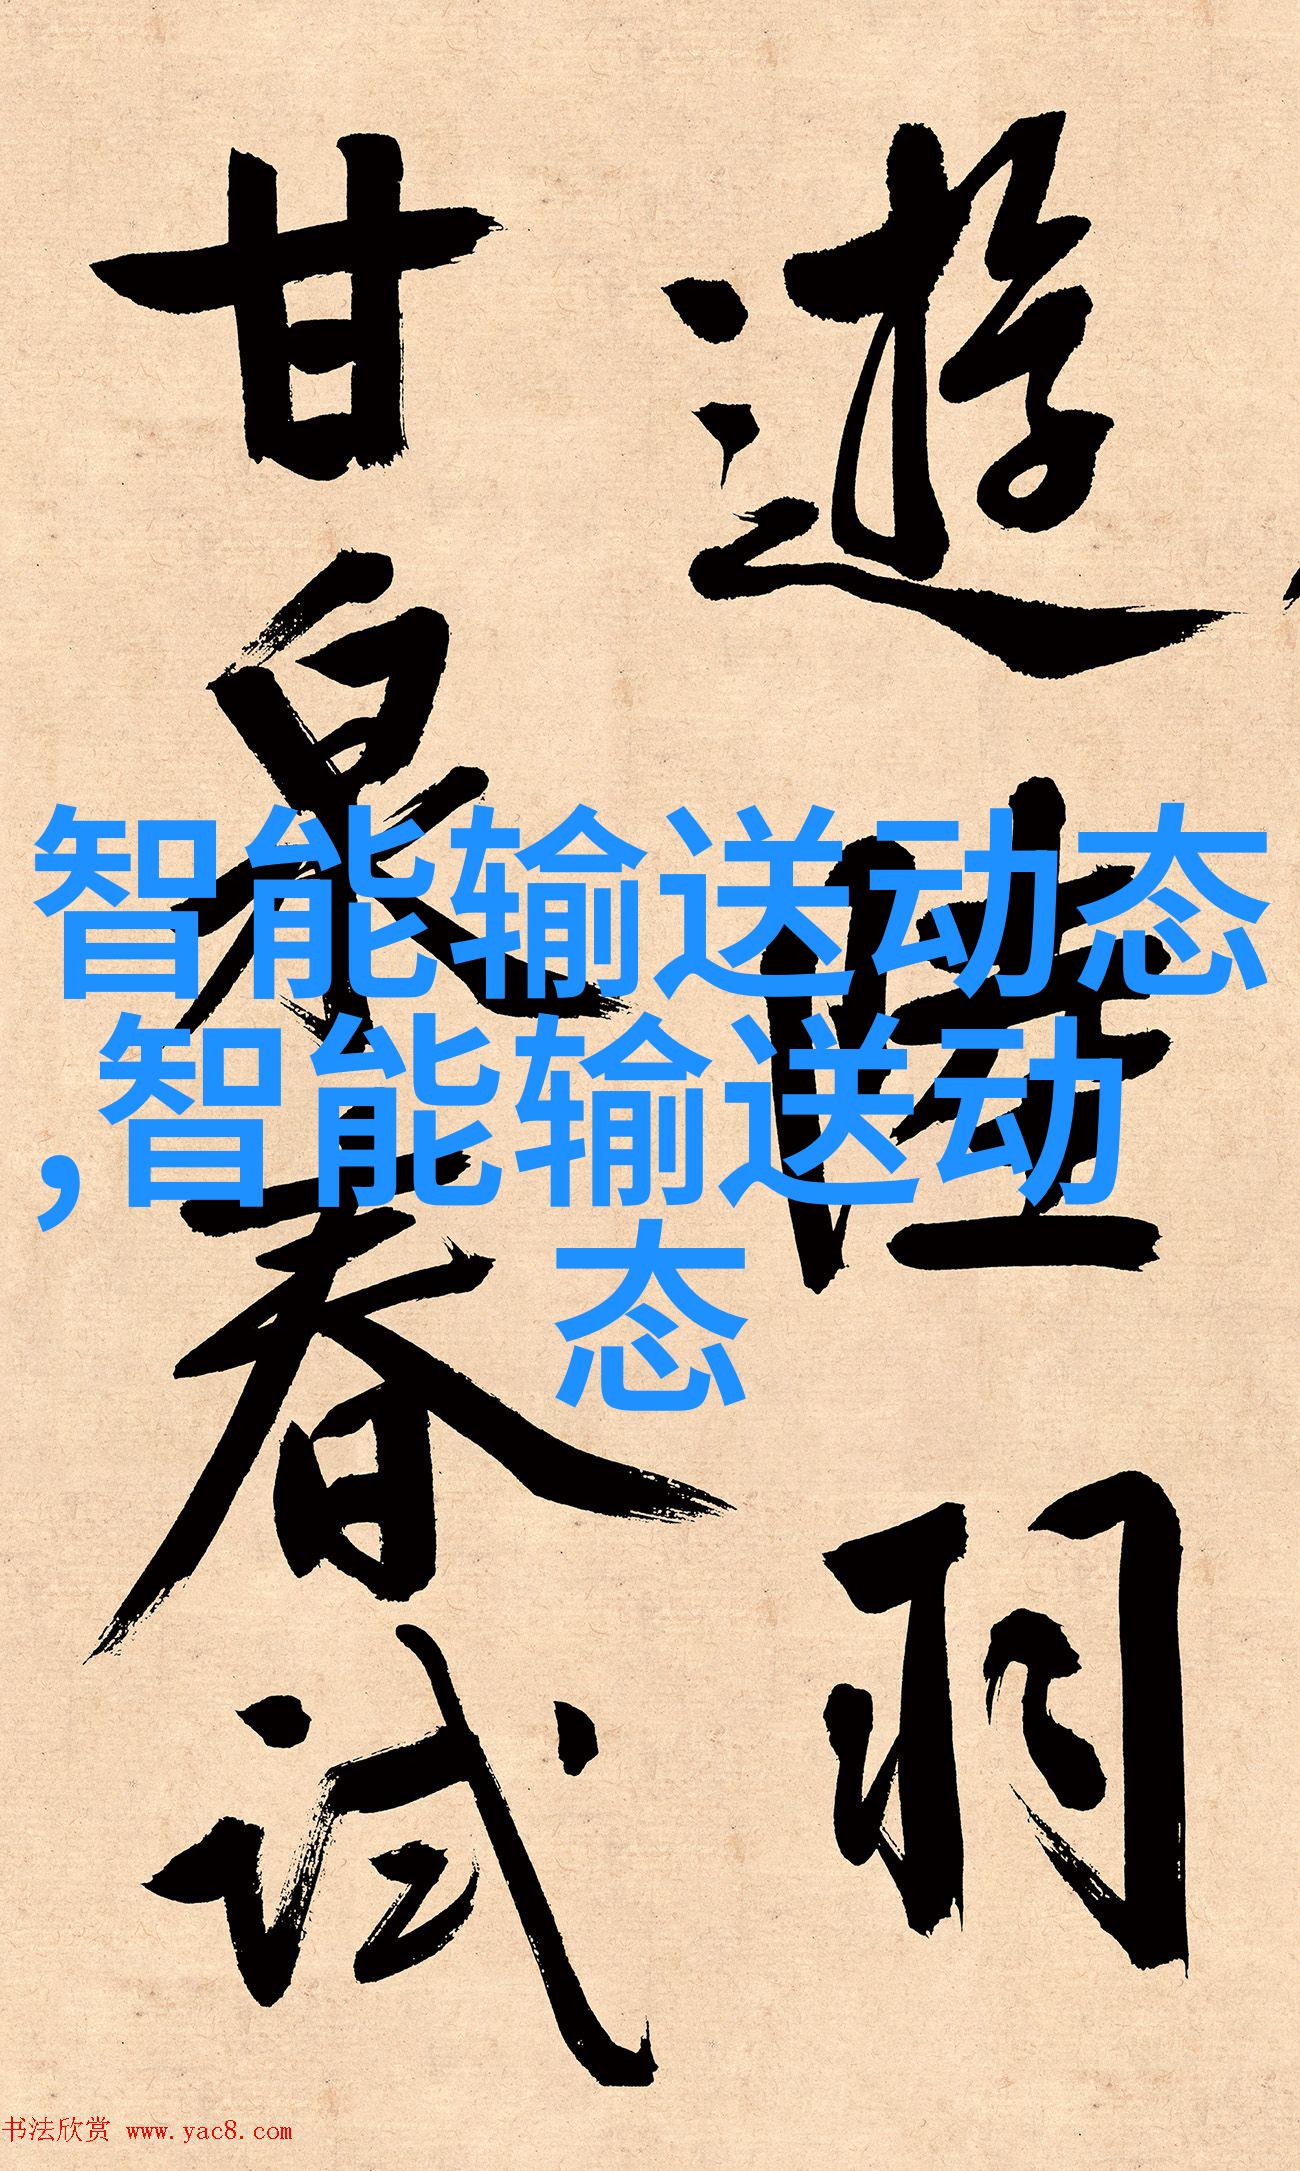 遊陸羽
甘泉春試
智能输送动态
,智能输送动
态
书法欣赏 www.yac8.com